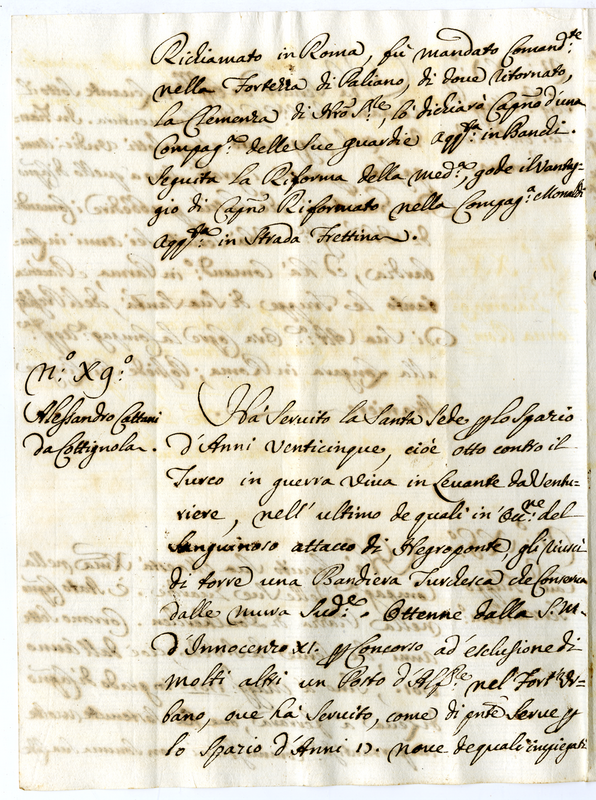 Richiamato in Roma, fù mandato Comand.te
nella Fortezza di Paliano, di dove ritornato,
la Clemenza di N'ro S.re, lo dichiarò Cap'no d'una
Compag.a delle sue guardie Agg.ta in Banchi.
Seguita la Riforma della med.a, gode il Vantag=
gio di Cap'no Riformato nella Compag.a Monaldi
Agg.ta in Strada Frattina.
N.o X9.o
Alessandro Cattani
da Cottignola.
Hà servito la Santa Sede p lo spazio
d'Anni venticinque, cioè otto contro il
Turco in guerra viva in Levante da Ventu=
riere, nell'ultimo de quali in Occ.ne del
sanguinoso attacco di Negroponte gli riuscì
di torre una Bandiera Turchesca che conserva
dalle mura Sud.e. Ottenne dalla S. M.
d'Innocenzo XI. p Concorso ad esclusione di
molti altri un Posto d'Alf.re nel Forte Ur=
bano, ove hà servito, come di p'nte serve p
lo spazio d'Anni 17. nove de quali impiegati